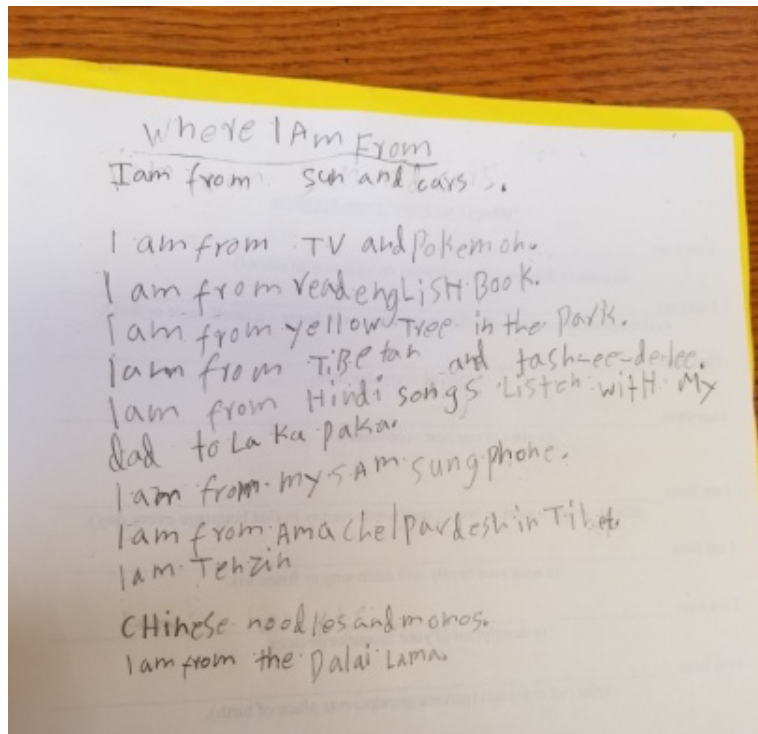 Where I Am From
I am from sun and cars.
I am from TV and Pokemon.
I am from read engLiSH Book.
I am from yellow Tree in the Park.
I am from TiBetan and tash-ee-de-lee.
I am from Hindi songs Listen with My
dad to La Ka Paka.
I am from my SAmsung phone.
I am from Ama chel pardesh in Tibet.
I am Tenzin
CHinese noodles and momos.
I am from the Dalai Lama.